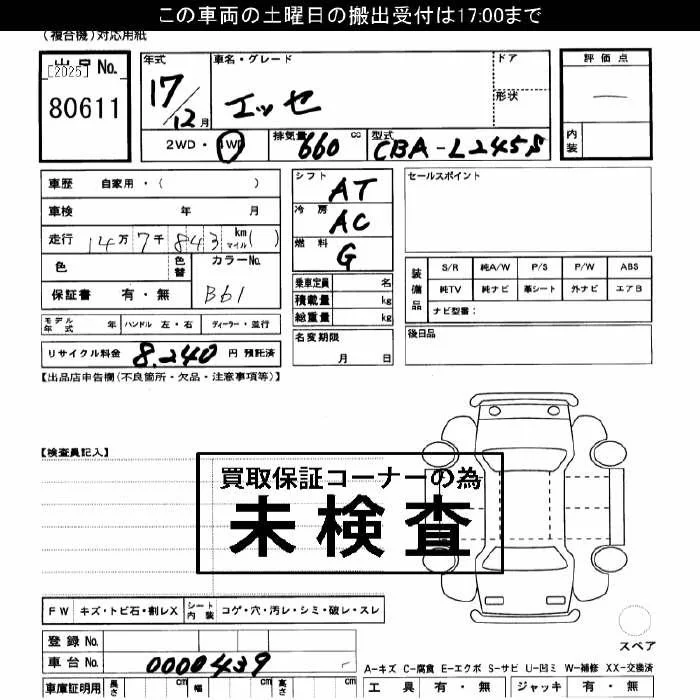 この車両の土曜日の搬出受付は17:00まで
(複合機)対応用紙
出品No.
[2025]
80611
年式
17/12月
車名・グレード
エッセ
ドア
形状
評価点
内装
2WD・4WD
排気量 660 cc
型式 CBA-L245S
車歴 自家用・( )
車検 年 月
走行 14万7千843 km マイル( )
色 色替 カラーNo.
B61
保証書 有・無
シフト AT
冷房 AC
燃料 G
セールスポイント
乗車定員 名
積載量 kg
総重量 kg
装備品
S/R 純A/W P/S P/W ABS
純TV 純ナビ 革シート 外ナビ エアB
ナビ型番:
モデル年式 年 ハンドル 左・右 ディーラー・並行
名変期限
月 日
後日品
リサイクル料金 8,240 円 預託済
【出品店申告欄(不良箇所・欠品・注意事項等)】
【検査員記入】
買取保証コーナーの為
未検査
FW キズ・トビ石・割レX シート内装 コゲ・穴・汚レ・シミ・破レ・スレ
登録No.
車台No. 0000439
スペア
A-キズ C-腐食 E-エクボ S-サビ U-凹ミ W-補修 XX-交換済
車庫証明用 長さ cm 幅 cm 高さ cm
工具 有・無 ジャッキ 有・無